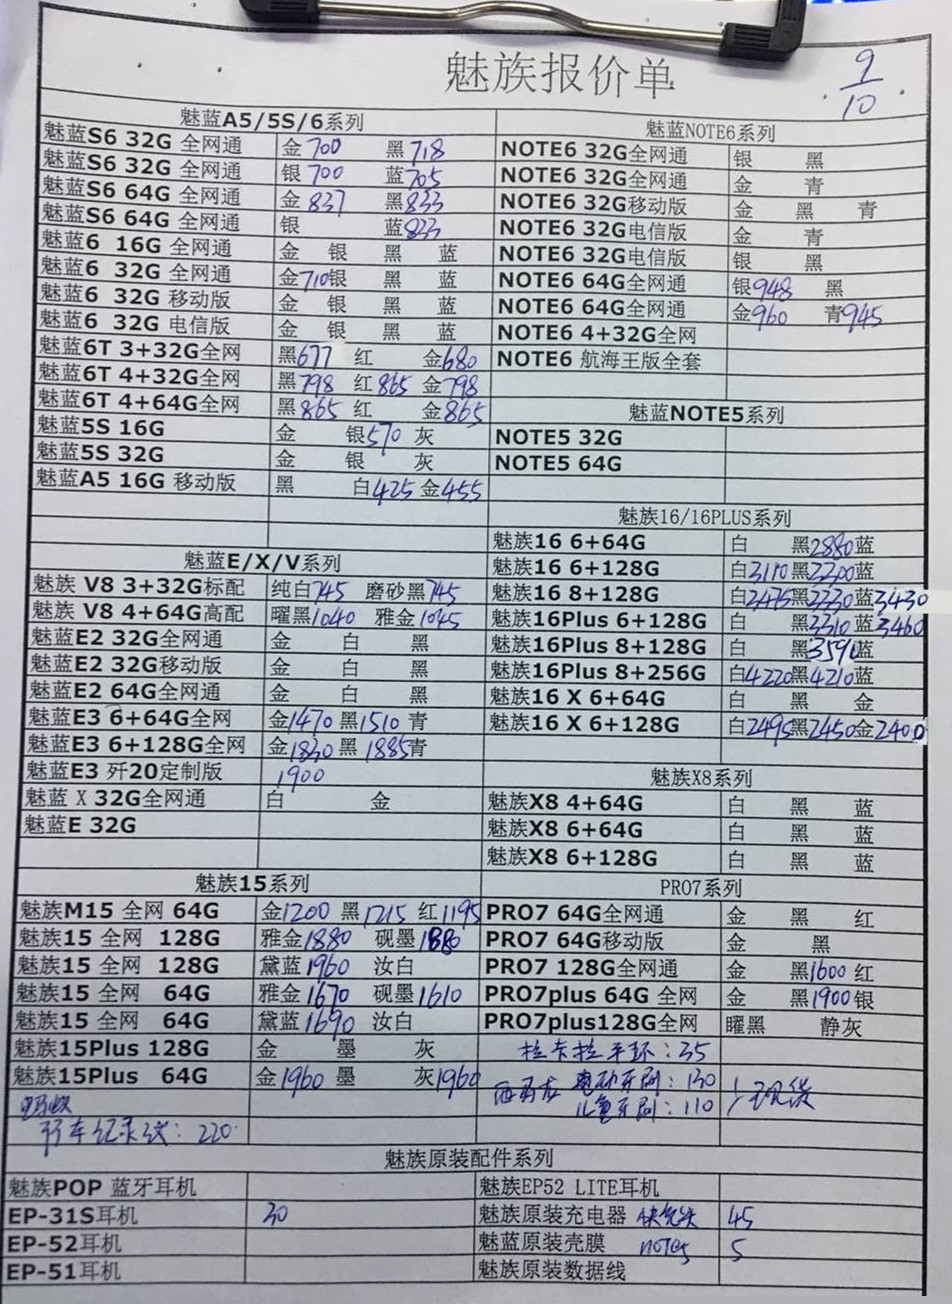 魅族报价单
9/10
魅蓝A5/5S/6系列
魅蓝S6 32G 全网通 金700 黑718
魅蓝S6 32G 全网通 银700 蓝705
魅蓝S6 64G 全网通 金837 黑833
魅蓝S6 64G 全网通 银 蓝833
魅蓝6 16G 全网通 金 银 黑 蓝
魅蓝6 32G 全网通 金710银 黑 蓝
魅蓝6 32G 移动版 金 银 黑 蓝
魅蓝6 32G 电信版 金 银 黑 蓝
魅蓝6T 3+32G全网 黑677 红 金680
魅蓝6T 4+32G全网 黑798 红865 金798
魅蓝6T 4+64G全网 黑865 红 金865
魅蓝5S 16G 金 银570 灰
魅蓝5S 32G 金 银 灰
魅蓝A5 16G 移动版 黑 白425 金455
魅蓝E/X/V系列
魅族 V8 3+32G标配 纯白745 磨砂黑745
魅族 V8 4+64G高配 曜黑1040 雅金1045
魅蓝E2 32G全网通 金 白 黑
魅蓝E2 32G移动版 金 白 黑
魅蓝E2 64G全网通 金 白 黑
魅蓝E3 6+64G全网 金1470 黑1510 青
魅蓝E3 6+128G全网 金1830 黑 1885青
魅蓝E3 歼20定制版 1900
魅蓝 X 32G全网通 白 金
魅蓝E 32G
魅族15系列
魅族M15 全网 64G 金1200 黑1215 红1195
魅族15 全网 128G 雅金1880 砚墨1880
魅族15 全网 128G 黛蓝1960 汝白
魅族15 全网 64G 雅金1670 砚墨1610
魅族15 全网 64G 黛蓝1690 汝白
魅族15Plus 128G 金 墨 灰
魅族15Plus 64G 金1960 墨 灰1960
行车记录仪：220
魅蓝NOTE6系列
NOTE6 32G全网通 银 黑
NOTE6 32G全网通 金 青
NOTE6 32G移动版 金 黑 青
NOTE6 32G电信版 金 青
NOTE6 32G电信版 银 黑
NOTE6 64G全网通 银948 黑
NOTE6 64G全网通 金960 青945
NOTE6 4+32G全网
NOTE6 航海王版全套
魅蓝NOTE5系列
NOTE5 32G
NOTE5 64G
魅族16/16PLUS系列
魅族16 6+64G 白 黑2880蓝
魅族16 6+128G 白3110黑3300蓝
魅族16 8+128G 白3475黑3330蓝3430
魅族16Plus 6+128G 白 黑3310 蓝3460
魅族16Plus 8+128G 白 黑3590蓝
魅族16Plus 8+256G 白4220黑4210蓝
魅族16 X 6+64G 白 黑 金
魅族16 X 6+128G 白2495黑2450金2400
魅族X8系列
魅族X8 4+64G 白 黑 蓝
魅族X8 6+64G 白 黑 蓝
魅族X8 6+128G 白 黑 蓝
PRO7系列
PRO7 64G全网通 金 黑 红
PRO7 64G移动版 金 黑
PRO7 128G全网通 金 黑1600 红
PRO7plus 64G 全网 金 黑1900银
PRO7plus128G全网 曜黑 静灰
拉卡拉手环：35
西马龙 电动牙刷：130
儿童牙刷：110 }现货
魅族原装配件系列
魅族POP 蓝牙耳机
EP-31S耳机 30
EP-52耳机
EP-51耳机
魅族EP52 LITE耳机
魅族原装充电器 快充头 45
魅蓝原装壳膜 note5 5
魅族原装数据线